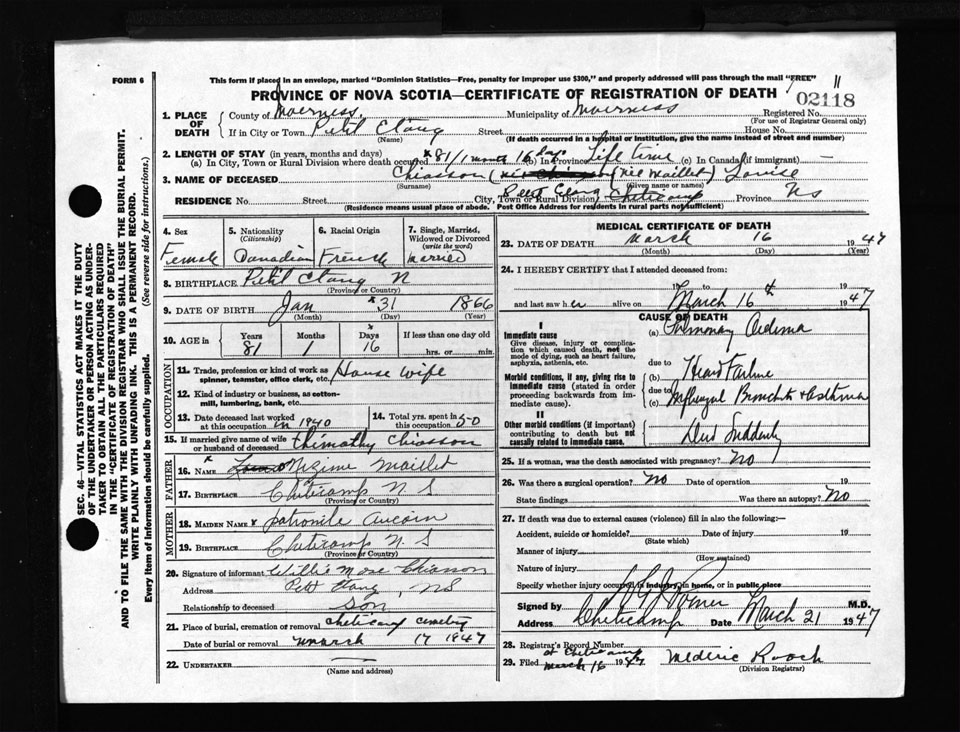 FORM 6
This form if placed in an envelope, marked "Dominion Statistics—Free, penalty for improper use $300," and properly addressed will pass through the mail "FREE"
11
PROVINCE OF NOVA SCOTIA—CERTIFICATE OF REGISTRATION OF DEATH
02118
1. PLACE OF DEATH
County of Inverness. Municipality of Inverness Registered No.
(For use of Registrar General only)
If in City or Town Petit Etang Street House No.
(Name) (If death occurred in a hospital or institution, give the name instead of street and number)
2. LENGTH OF STAY (in years, months and days)
(a) In City, Town or Rural Division where death occurred 81/1 month 16 days (b) In Province Life time (c) In Canada (if immigrant) —
3. NAME OF DECEASED Chiasson (nee Maillet) Louise
(Surname) (Given name or names)
RESIDENCE No. Street City, Town or Rural Division Petit Etang Cheticamp Province NS
(Residence means usual place of abode. Post Office Address for residents in rural parts not sufficient)
4. Sex
Female
5. Nationality
(Citizenship)
Canadian
6. Racial Origin
French
7. Single, Married, Widowed or Divorced
(write the word)
Married
8. BIRTHPLACE Petit Etang N
(Province or Country)
9. DATE OF BIRTH Jan 31 1866
(Month) (Day) (Year)
10. AGE in Years Months Days If less than one day old
81 1 16 hrs. or min.
OCCUPATION
11. Trade, profession or kind of work as spinner, teamster, office clerk, etc. House wife
12. Kind of industry or business, as cotton-mill, lumbering, bank, etc.
13. Date deceased last worked at this occupation in 1940
14. Total yrs. spent in this occupation 50
15. If married give name of wife or husband of deceased Thimothy Chiasson
FATHER
16. NAME Nizime Maillet
17. BIRTHPLACE Cheticamp N S
MOTHER
18. MAIDEN NAME Patronile Aucoin
19. BIRTHPLACE Cheticamp N.S
(Province or Country)
20. Signature of informant Willie Mose Chiasson
Address Petit Etang, NS
Relationship to deceased son
21. Place of burial, cremation or removal Cheticamp cemetery
Date of burial or removal March 17 1947
22. UNDERTAKER —
(Name and address)
MEDICAL CERTIFICATE OF DEATH
23. DATE OF DEATH March 16 1947
(Month) (Day) (Year)
24. I HEREBY CERTIFY that I attended deceased from:
19 to
and last saw her alive on March 16th 1947
CAUSE OF DEATH
I
Immediate cause
Give disease, injury or complication which caused death, not the mode of dying, such as heart failure, asphyxia, asthenia, etc.
(a) Pulmonary Oedema
due to
Morbid conditions, if any, giving rise to immediate cause (stated in order proceeding backwards from immediate cause).
(b) Heart Failure
due to
(c) Influenzal Bronchitis & asthma
II
Other morbid conditions (if important) contributing to death but not causally related to immediate cause.
Died Suddenly
25. If a woman, was the death associated with pregnancy? No
26. Was there a surgical operation? No Date of operation 19
State findings Was there an autopsy? No
27. If death was due to external causes (violence) fill in also the following:—
Accident, suicide or homicide? Date of injury 19
(State which)
Manner of injury
(How sustained)
Nature of injury
Specify whether injury occurred in industry, in home, or in public place
Signed by M.D.
Address Cheticamp Date March 21 1947
28. Registrar's Record Number
29. Filed at Cheticamp March 16 1947 Mederic Roach
(Division Registrar)
SEC. 46—VITAL STATISTICS ACT MAKES IT THE DUTY
OF THE UNDERTAKER OR PERSON ACTING AS UNDERTAKER TO OBTAIN ALL THE PARTICULARS REQUIRED
IN THE "CERTIFICATE OF REGISTRATION OF DEATH"
AND TO FILE THE SAME WITH THE DIVISION REGISTRAR WHO SHALL ISSUE THE BURIAL PERMIT.
WRITE PLAINLY WITH UNFADING INK. THIS IS A PERMANENT RECORD.
Every item of Information should be carefully supplied. (See reverse side for instructions.)